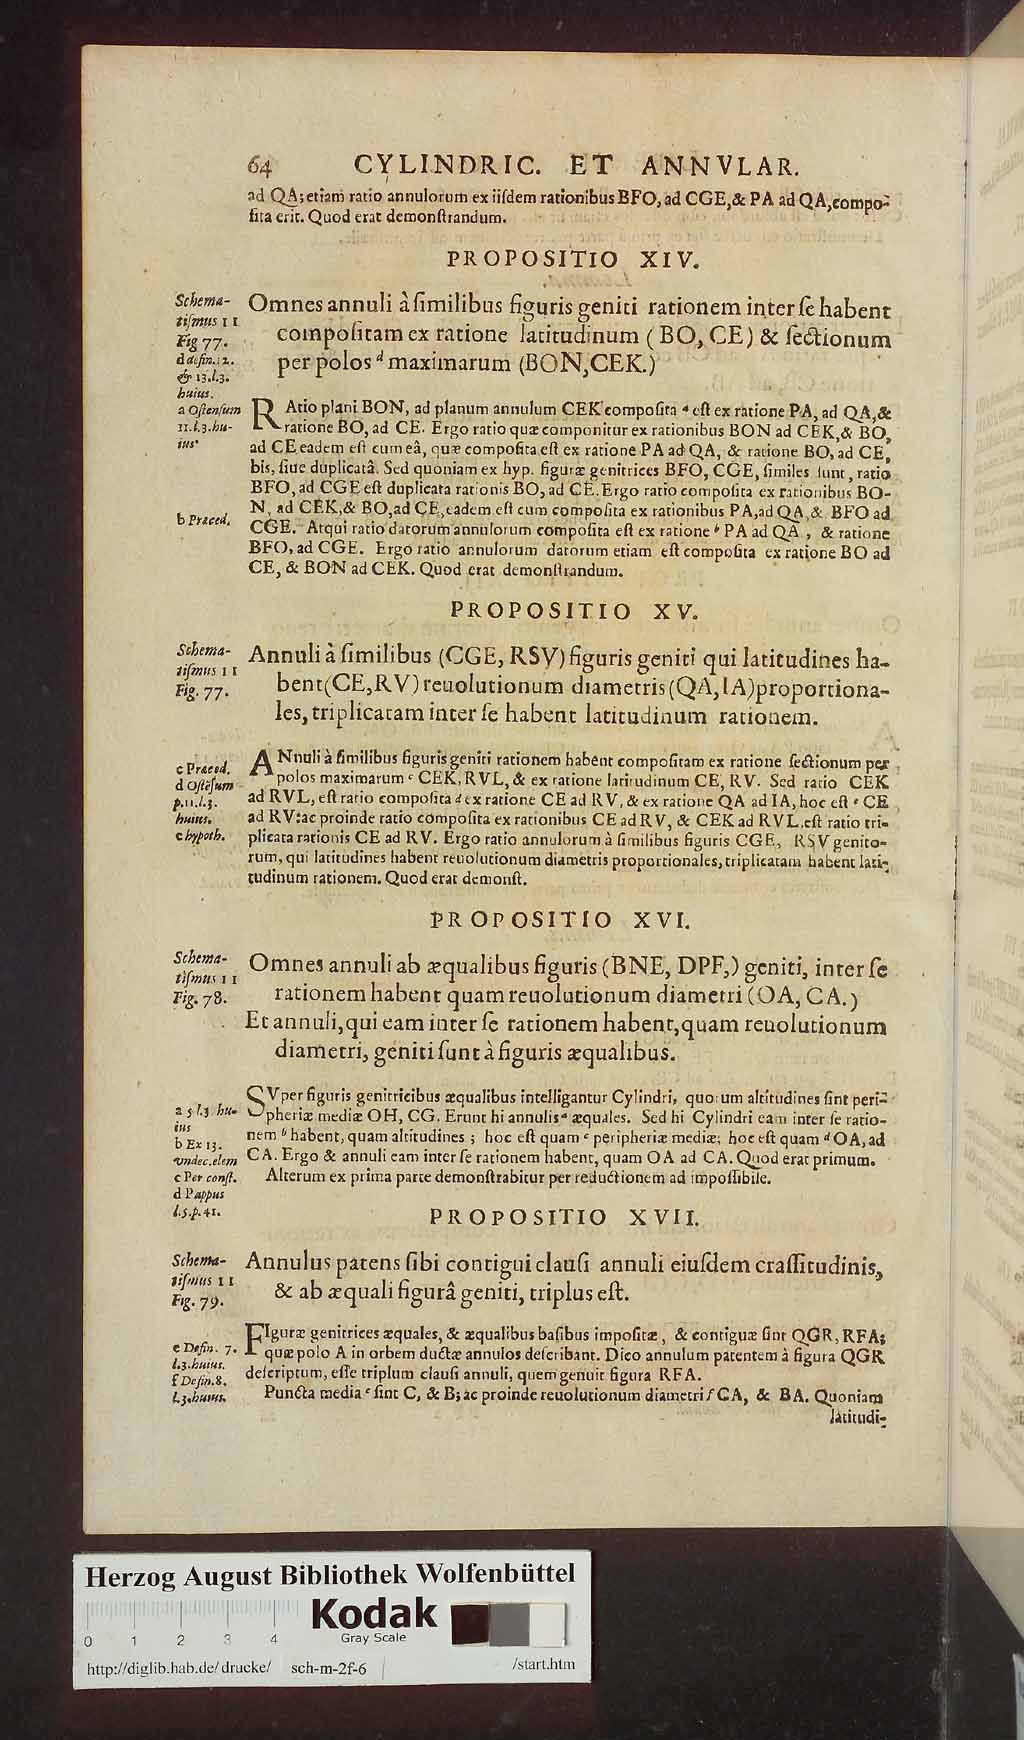 64 CYLINDRIC. ET ANNVLAR.
ad QA; etiam ratio annulorum ex iiſdem rationibus BFO, ad CGE, & PA ad QA, compo-
ſita erit. Quod erat demonſtrandum.
PROPOSITIO XIV.
Schema-
tiſmus 11
Fig 77.
d defin. 12.
& 13. l. 3.
huius.
Omnes annuli à ſimilibus figuris geniti rationem inter ſe habent
compoſitam ex ratione latitudinum (BO, CE) & ſectionum
per polos d maximarum (BON, CEK.)
a Oſtenſum
11. l. 3. hu-
ius.
RAtio plani BON, ad planum annulum CEK compoſita a eſt ex ratione PA, ad QA, &
ratione BO, ad CE. Ergo ratio quæ componitur ex rationibus BON ad CEK, & BO,
ad CE eadem eſt cum eâ, quæ compoſita eſt ex ratione PA ad QA, & ratione BO, ad CE,
bis, ſiue duplicatâ. Sed quoniam ex hyp. figuræ genitrices BFO, CGE, ſimiles ſunt, ratio
BFO, ad CGE eſt duplicata rationis BO, ad CE. Ergo ratio compoſita ex rationibus BO-
N, ad CEK, & BO, ad CE, eadem eſt cum compoſita ex rationibus PA, ad QA, & BFO ad
b Præced.
CGE. Atqui ratio datorum annulorum compoſita eſt ex ratione b PA ad QA, & ratione
BFO, ad CGE. Ergo ratio annulorum datorum etiam eſt compoſita ex ratione BO ad
CE, & BON ad CEK. Quod erat demonſtrandum.
PROPOSITIO XV.
Schema-
tiſmus 11
Fig. 77.
Annuli à ſimilibus (CGE, RSV) figuris geniti qui latitudines ha-
bent (CE, RV) reuolutionum diametris (QA, IA) proportiona-
les, triplicatam inter ſe habent latitudinum rationem.
c Præced.
d Oſtēſum
p. 11. l. 3.
huius.
e hypoth.
ANnuli à ſimilibus figuris geniti rationem habent compoſitam ex ratione ſectionum per
polos maximarum c CEK, RVL, & ex ratione latitudinum CE, RV. Sed ratio CEK
ad RVL, eſt ratio compoſita d ex ratione CE ad RV, & ex ratione QA ad IA, hoc eſt e CE
ad RV: ac proinde ratio compoſita ex rationibus CE ad RV, & CEK ad RVL. eſt ratio tri-
plicata rationis CE ad RV. Ergo ratio annulorum à ſimilibus figuris CGE, RSV genito-
rum, qui latitudines habent reuolutionum diametris proportionales, triplicatam habent lati-
tudinum rationem. Quod erat demonſt.
PROPOSITIO XVI.
Schema-
tiſmus 11
Fig. 78.
Omnes annuli ab æqualibus figuris (BNE, DPF,) geniti, inter ſe
rationem habent quam reuolutionum diametri (OA, CA.)
Et annuli, qui eam inter ſe rationem habent, quam reuolutionum
diametri, geniti ſunt à figuris æqualibus.
a 5. l. 3. hu-
ius
b Ex 13.
vndec. elem
c Per conſt.
d Pappus
l. 5. p. 41.
SVper figuris genitricibus æqualibus intelligantur Cylindri, quorum altitudines ſint peri-
pheriæ mediæ OH, CG. Erunt hi annulis a æquales. Sed hi Cylindri eam inter ſe ratio-
nem b habent, quam altitudines; hoc eſt quam c peripheriæ mediæ; hoc eſt quam d OA, ad
CA. Ergo & annuli eam inter ſe rationem habent, quam OA ad CA. Quod erat primum.
Alterum ex prima parte demonſtrabitur per reductionem ad impoſſibile.
PROPOSITIO XVII.
Schema-
tiſmus 11
Fig. 79.
Annulus patens ſibi contigui clauſi annuli eiuſdem craſſitudinis,
& ab æquali figurâ geniti, triplus eſt.
e Defin. 7.
l. 3. huius.
f Defin. 8.
l. 3. huius.
FIguræ genitrices æquales, & æqualibus baſibus impoſitæ, & contiguæ ſint QGR, RFA;
quæ polo A in orbem ductæ annulos deſcribant. Dico annulum patentem à figura QGR
deſcriptum, eſſe triplum clauſi annuli, quem genuit figura RFA.
Puncta media e ſint C, & B; ac proinde reuolutionum diametri f CA, & BA. Quoniam
latitudi-
Herzog August Bibliothek Wolfenbüttel
Kodak
Gray Scale
0 1 2 3 4
http://diglib.hab.de/drucke/ sch-m-2f-6 /start.htm